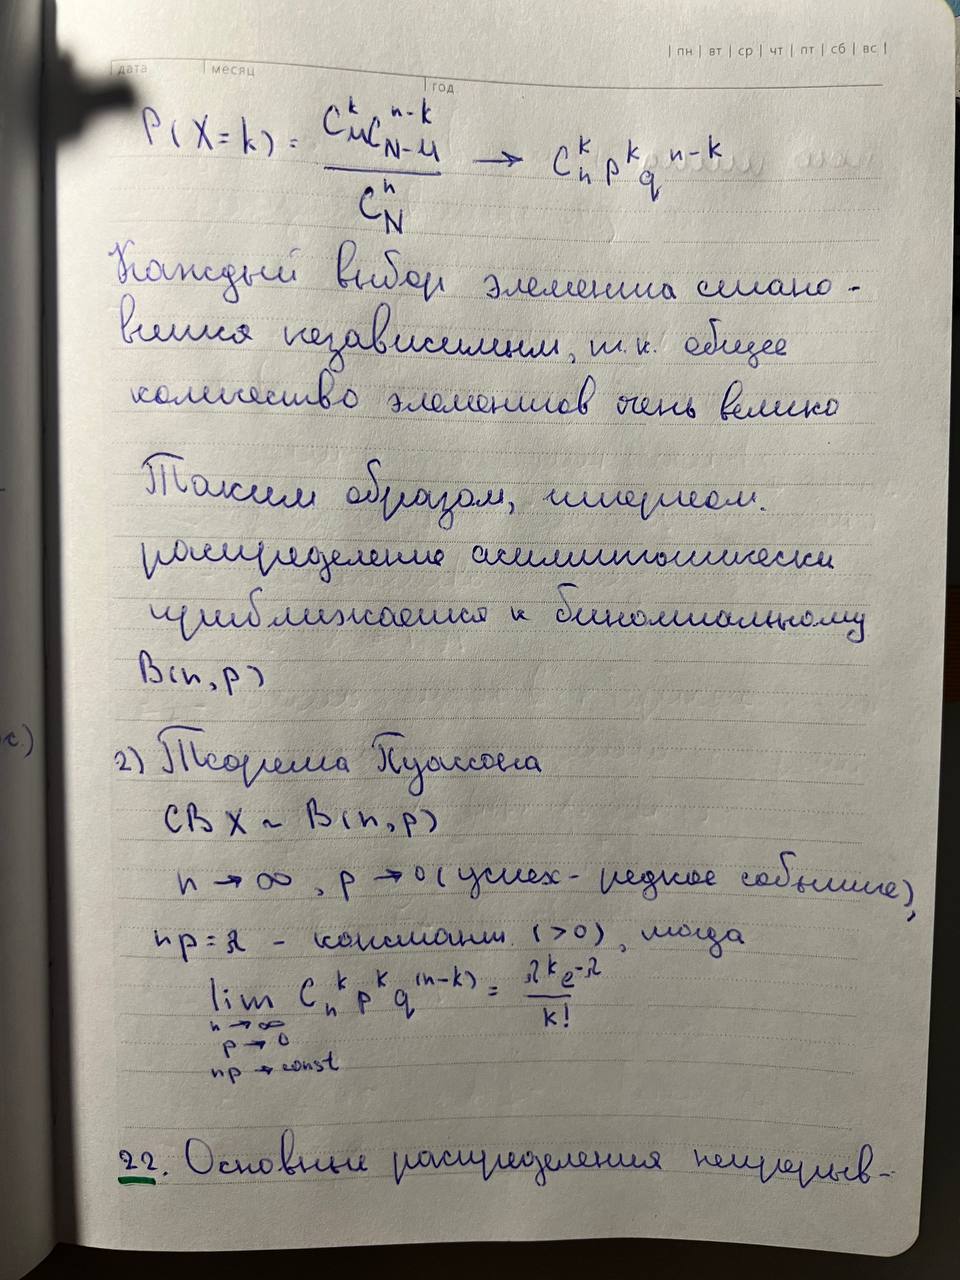 | пн | вт | ср | чт | пт | сб | вс |
дата | месяц | год
P(X=k) = C_M^k C_{N-M}^{n-k} / C_N^n → C_n^k p^k q^{n-k}
Каждый выбор элемента стано-
вится независимым, т.к. общее
количество элементов очень велико
Таким образом, гипергеом.
распределение асимптотически
приближается к биномиальному
B(n,p)
2) Теорема Пуассона
СВ X ~ B(n,p)
n → ∞, p → 0 (успех - редкое событие),
np = λ - констант. (>0), тогда
lim C_n^k p^k q^{(n-k)} = λ^k e^{-λ} / k!
n → ∞
p → 0
np → const
22. Основные распределения непрерыв-
с.)